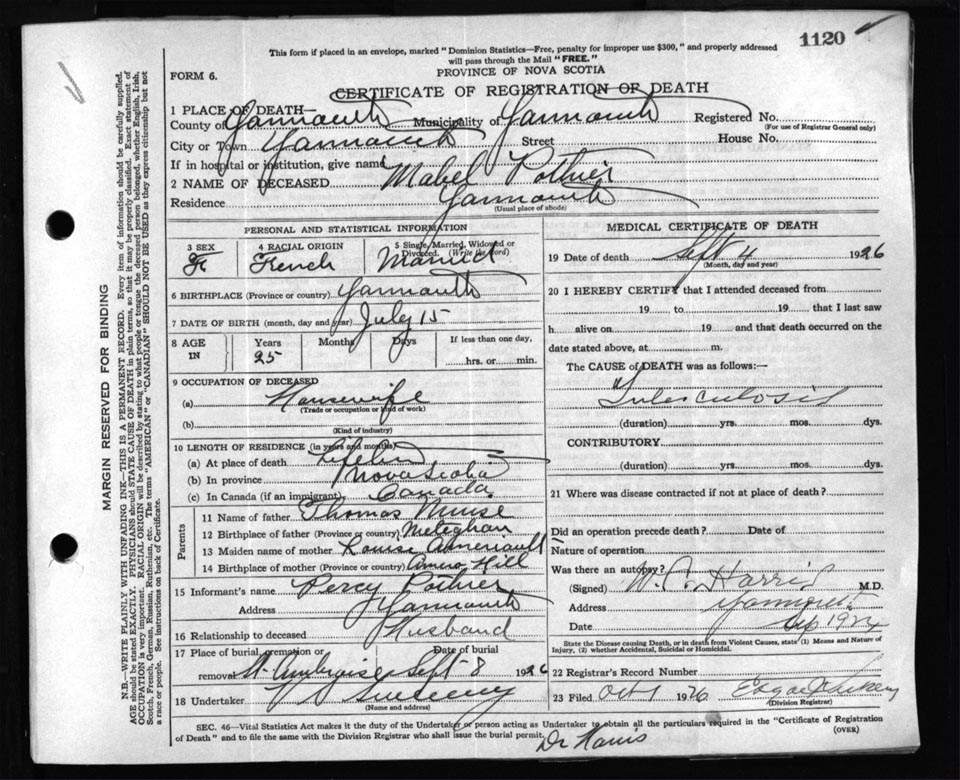 1120
This form if placed in an envelope, marked "Dominion Statistics—Free, penalty for improper use $300," and properly addressed
will pass through the Mail "FREE."
PROVINCE OF NOVA SCOTIA
FORM 6.
CERTIFICATE OF REGISTRATION OF DEATH
1 PLACE OF DEATH—
County of Yarmouth Municipality of Yarmouth Registered No.
(For use of Registrar General only)
City or Town Yarmouth Street House No.
If in hospital or institution, give name
2 NAME OF DECEASED Mabel Pothier
Residence Yarmouth
(Usual place of abode)
PERSONAL AND STATISTICAL INFORMATION
3 SEX 4 RACIAL ORIGIN 5 Single, Married, Widowed or
Divorced. (Write the word)
F French Married
6 BIRTHPLACE (Province or country) Yarmouth
7 DATE OF BIRTH (month, day and year) July 15
8 AGE IN Years Months Days If less than one day,
25 hrs. or min.
9 OCCUPATION OF DECEASED
(a) Housewife
(Trade or occupation or kind of work)
(b)
(Kind of industry)
10 LENGTH OF RESIDENCE (in years and months)
(a) At place of death
(b) In province Nova Scotia
(c) In Canada (if an immigrant) Canada
Parents
11 Name of father Thomas Muise
12 Birthplace of father (Province or country) Meteghan
13 Maiden name of mother Louise
14 Birthplace of mother (Province or country) Hill
15 Informant's name Percy Pothier
Address Yarmouth
16 Relationship to deceased Husband
17 Place of burial, cremation or Date of burial
removal St Ambroise Sept 8 1926
18 Undertaker Sweeny
(Name and address)
MEDICAL CERTIFICATE OF DEATH
19 Date of death Sept 4 1926
(Month, day and year)
20 I HEREBY CERTIFY that I attended deceased from
19 to 19 that I last saw
h alive on 19 and that death occurred on the
date stated above, at m.
The CAUSE of DEATH was as follows:—
Tuberculosis
(duration) yrs. mos. dys.
CONTRIBUTORY
(duration) yrs. mos. dys.
21 Where was disease contracted if not at place of death?
Did an operation precede death? Date of
Nature of operation
Was there an autopsy?
(Signed) W. C. Harris M.D.
Address Yarmouth
Date
State the Disease causing Death, or in death from Violent Causes, state (1) Means and Nature of
Injury, (2) whether Accidental, Suicidal or Homicidal.
22 Registrar's Record Number
23 Filed Oct 1 1926
(Division Registrar)
SEC. 46—Vital Statistics Act makes it the duty of the Undertaker or person acting as Undertaker to obtain all the particulars required in the "Certificate of Registration
of Death" and to file the same with the Division Registrar who shall issue the burial permit.
(OVER)
Dr Harris
MARGIN RESERVED FOR BINDING
N.B.—WRITE PLAINLY WITH UNFADING INK—THIS IS A PERMANENT RECORD. Every item of information should be carefully supplied.
AGE should be stated EXACTLY. PHYSICIANS should STATE CAUSE OF DEATH in plain terms, so that it may be properly classified. Exact statement of
OCCUPATION is very important. RACIAL ORIGIN will be described by stating to what people or tongue the deceased person belonged, whether English, Irish,
Scotch, French, German, Russian, Ruthenian, etc. The terms "AMERICAN" or "CANADIAN" SHOULD NOT BE USED as they express citizenship but not
a race or people. See instructions on back of Certificate.